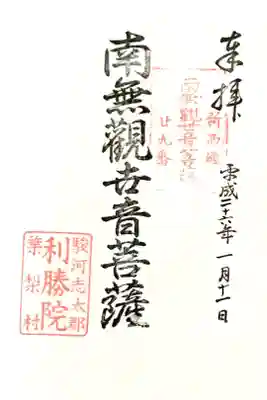 奉拝
平成二十六年一月十一日
新西國
廿九番
南無觀世音菩薩
駿河志太郡
利勝院
葉梨村